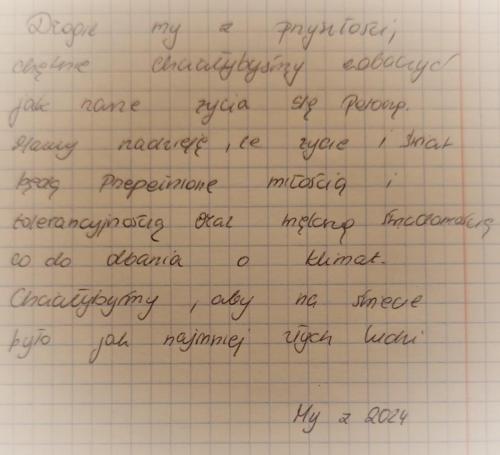 Drogie my z przyszłości,
chętnie chciałybyśmy zobaczyć
jak nasze życia się potoczą.
Mamy nadzieję, że życie i świat
będą przepełnione miłością i
tolerancyjnością oraz większą świadomością
co do dbania o klimat.
Chciałybyśmy, aby na świecie
było jak najmniej złych ludzi
My z 2024